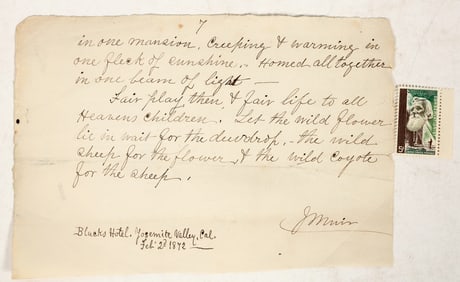 7
in one mansion, creeping & warming in
one fleck of sunshine, - Homed all together
in one beam of light —
Fair play, then, & fair life to all
Heavens children. Let the wild flower
lie in wait for the dewdrop, - the wild
sheep for the flower, & the wild coyote
for the sheep.
J Muir
Blacks Hotel. Yosemite Valley, Cal.
Feb. 2d 1872
5¢